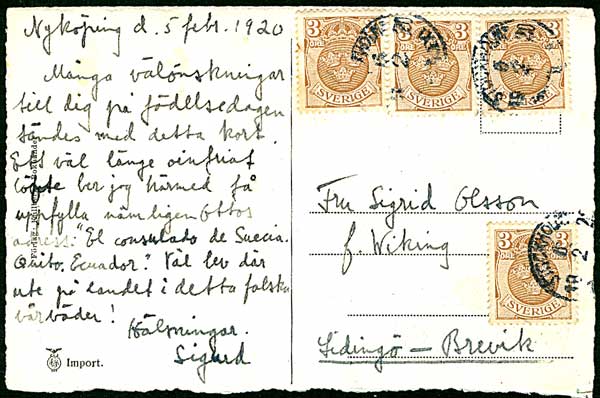 Nyköping d. 5 febr. 1920
Många välönskningar
till dig på födelsedagen
sändes med detta kort.
Ett väl länge oinfriat
löfte ber jag härmed få
uppfylla nämligen Ottos
adress: "El consulado de Suecia.
Quito. Ecuador." Väl lev där
ute på landet i detta falska
vårväder!
Hälsningar.
Sigurd
Import.
3 ÖRE SVERIGE
3 ÖRE SVERIGE
3 ÖRE SVERIGE
Fru Sigrid Olsson
f. Wiking
3 ÖRE SVERIGE
Lidingö – Brevik